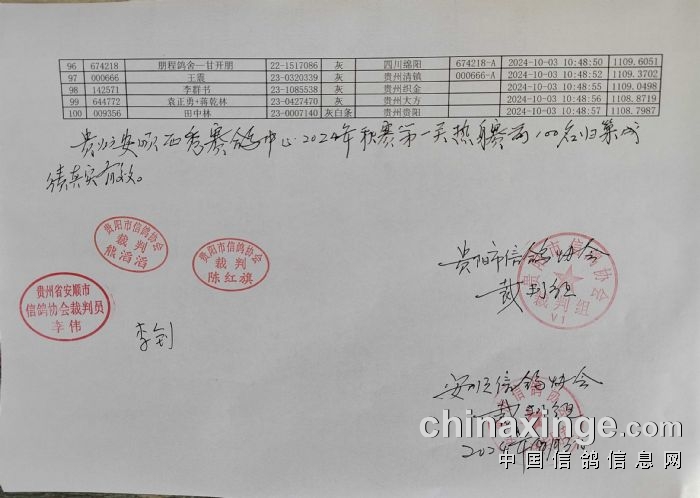 96 674218 朋程鸽舍—甘开朋 22-1517086 灰 四川绵阳 674218-A 2024-10-03 10:48:50 1109.6051
97 000666 王震 23-0320339 灰 贵州清镇 000666-A 2024-10-03 10:48:52 1109.3702
98 142571 李群书 23-1085538 灰 贵州织金 2024-10-03 10:48:55 1109.0498
99 644772 袁正勇+蒋乾林 23-0427470 灰 贵州大方 2024-10-03 10:48:56 1108.8719
100 009356 田中林 23-0007140 灰白条 贵州贵阳 2024-10-03 10:48:58 1108.7987
贵州安顺西秀赛鸽中心2024年秋赛第一关热赛前100名归巢成
绩真实有效。
贵阳市信鸽协会
裁判
熊滔滔
贵阳市信鸽协会
裁判
陈红旗
贵州省安顺市
信鸽协会裁判员
李伟
李剑
贵阳市信鸽协会
裁判组
贵阳市信鸽协会
裁判组
V1
安顺信鸽协会
裁判组
2024年10月3日
chinaxinge.com
中国信鸽信息网